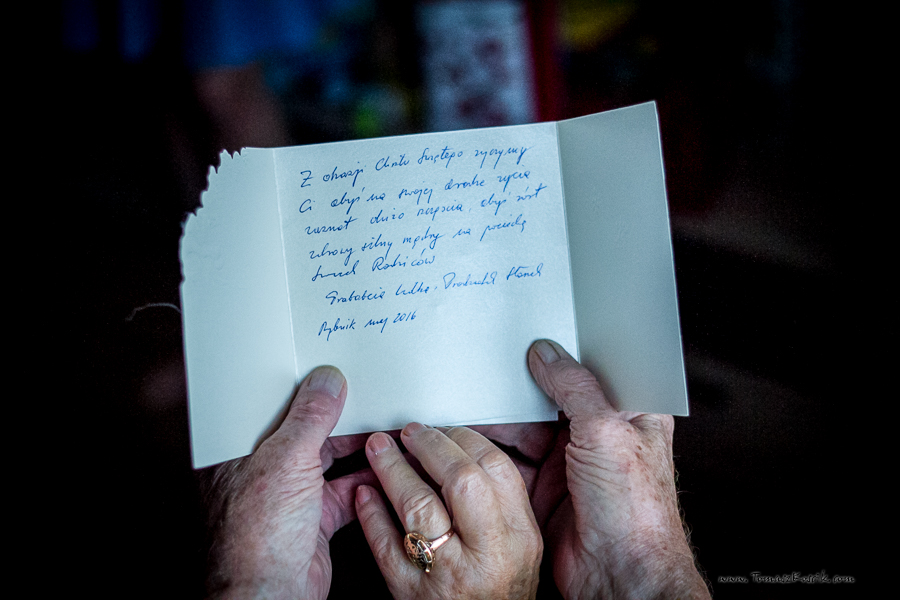 Z okazji Chrztu Świętego życzymy
Ci abyś na swojej drodze życia
zaznał dużo szczęścia, abyś rósł
zdrowy silny mądry na pociechę
swoich Rodziców
Prababcia Lidka, Pradziadek Stanek
Rybnik maj 2016
www.TomaszKupik.com